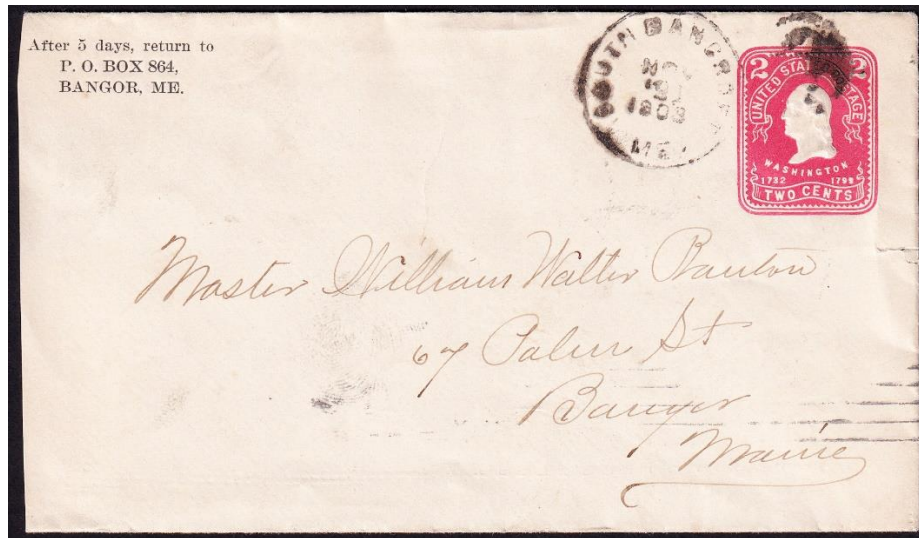 After 5 days, return to
P. O. BOX 864,
BANGOR, ME.
SOUTH BANGOR
NOV
1903
ME.
2 2
UNITED STATES POSTAGE
WASHINGTON
1732 1799
TWO CENTS
Master William Walter Banton
67 Palm St
Bangor
Maine